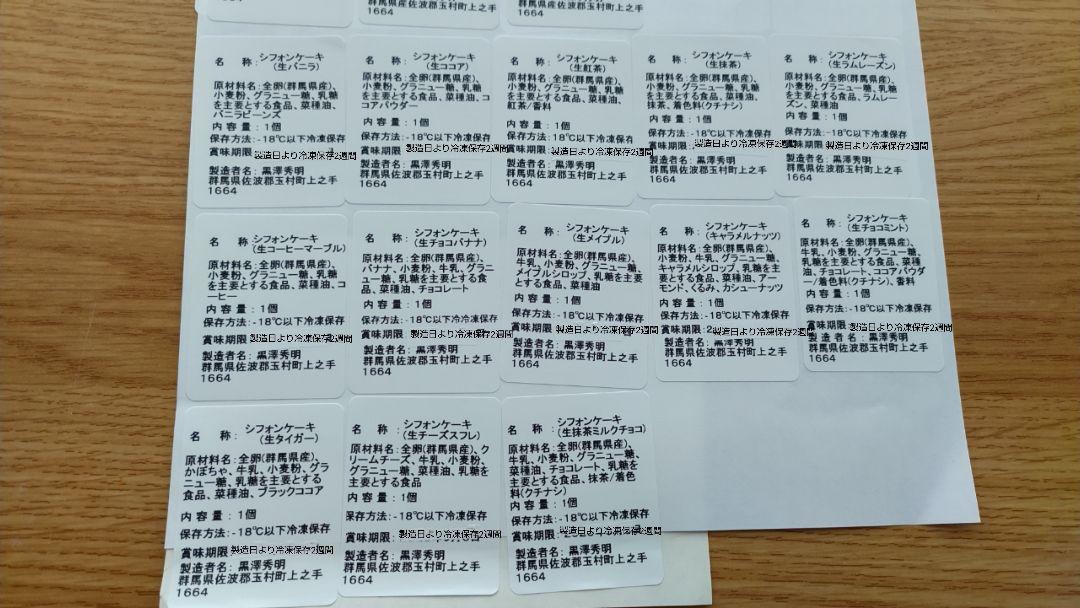 群馬県産佐波郡玉村町上之手
1664
群馬県産佐波郡玉村町上之手
1664
名 称: シフォンケーキ
(生バニラ)
原材料名:全卵(群馬県産)、
小麦粉、グラニュー糖、乳糖
を主要とする食品、菜種油、
バニラビーンズ
内 容 量 : 1個
保存方法:-18℃以下冷凍保存
賞味期限 製造日より冷凍保存2週間
製造者名: 黒澤秀明
群馬県佐波郡玉村町上之手
1664
名 称: シフォンケーキ
(生ココア)
原材料名:全卵(群馬県産)、
小麦粉、グラニュー糖、乳糖
を主要とする食品、菜種油、コ
コアパウダー
内 容 量 : 1個
保存方法:-18℃以下冷凍保存
賞味期限 製造日より冷凍保存2週間
製造者名: 黒澤秀明
群馬県佐波郡玉村町上之手
1664
名 称: シフォンケーキ
(生紅茶)
原材料名:全卵(群馬県産)、
小麦粉、グラニュー糖、乳糖
を主要とする食品、菜種油、
紅茶/香料
内 容 量 : 1個
保存方法:-18℃以下冷凍保存
賞味期限 製造日より冷凍保存2週間
製造者名: 黒澤秀明
群馬県佐波郡玉村町上之手
1664
名 称: シフォンケーキ
(生抹茶)
原材料名:全卵(群馬県産)、
小麦粉、グラニュー糖、乳糖
を主要とする食品、菜種油、
抹茶、着色料(クチナシ)
内 容 量 : 1個
保存方法:-18℃以下冷凍保存
賞味期限: 製造日より冷凍保存2週間
製造者名: 黒澤秀明
群馬県佐波郡玉村町上之手
1664
名 称: シフォンケーキ
(生ラムレーズン)
原材料名:全卵(群馬県産)、
小麦粉、グラニュー糖、乳糖
を主要とする食品、ラムレー
ズン、菜種油
内 容 量 : 1個
保存方法:-18℃以下冷凍保存
賞味期限 製造日より冷凍保存2週間
製造者名: 黒澤秀明
群馬県佐波郡玉村町上之手
1664
名 称: シフォンケーキ
(生コーヒーマーブル)
原材料名:全卵(群馬県産)、
小麦粉、グラニュー糖、乳糖
を主要とする食品、菜種油、コ
ーヒー
内 容 量 : 1個
保存方法:-18℃以下冷凍保存
賞味期限 製造日より冷凍保存2週間
製造者名: 黒澤秀明
群馬県佐波郡玉村町上之手
1664
名 称: シフォンケーキ
(生チョコバナナ)
原材料名:全卵(群馬県産)、
バナナ、小麦粉、牛乳、グラニ
ュー糖、乳糖を主要とする食
品、菜種油、チョコレート
内 容 量 : 1個
保存方法:-18℃以下冷凍保存
賞味期限 製造日より冷凍保存2週間
製造者名: 黒澤秀明
群馬県佐波郡玉村町上之手
1664
名 称: シフォンケーキ
(生メイプル)
原材料名:全卵(群馬県産)、
牛乳、小麦粉、グラニュー糖、
メイプルシロップ、乳糖を主要
とする食品、菜種油
内 容 量 : 1個
保存方法:-18℃以下冷凍保存
賞味期限 製造日より冷凍保存2週間
製造者名: 黒澤秀明
群馬県佐波郡玉村町上之手
1664
名 称: シフォンケーキ
(キャラメルナッツ)
原材料名:全卵(群馬県産)、
小麦粉、牛乳、グラニュー糖、
キャラメルシロップ、乳糖を主
要とする食品、菜種油、アー
モンド、くるみ、カシューナッツ
内 容 量 : 1個
保存方法:-18℃以下冷凍保存
賞味期限:2 製造日より冷凍保存2週間
製造者名: 黒澤秀明
群馬県佐波郡玉村町上之手
1664
名 称: シフォンケーキ
(生チョコミント)
原材料名:全卵(群馬県産)、
牛乳、小麦粉、グラニュー糖、
乳糖を主要とする食品、菜種
油、チョコレート、ココアパウダ
ー/着色料(クチナシ)、香料
内 容 量 : 1個
保存方法:-18℃以下冷凍保存
賞味期限 製造日より冷凍保存2週間
製造者名: 黒澤秀明
群馬県佐波郡玉村町上之手
1664
名 称: シフォンケーキ
(生タイガー)
原材料名:全卵(群馬県産)、
かぼちゃ、牛乳、小麦粉、グラ
ニュー糖、乳糖を主要とする
食品、菜種油、ブラックココア
内 容 量 : 1個
保存方法:-18℃以下冷凍保存
賞味期限 製造日より冷凍保存2週間
製造者名: 黒澤秀明
群馬県佐波郡玉村町上之手
1664
名 称: シフォンケーキ
(生チーズスフレ)
原材料名:全卵(群馬県産)、ク
リームチーズ、牛乳、小麦粉、
グラニュー糖、菜種油、乳糖を
主要とする食品
内 容 量 : 1個
保存方法:-18℃以下冷凍保存
賞味期限: 製造日より冷凍保存2週間
製造者名: 黒澤秀明
群馬県佐波郡玉村町上之手
1664
名 称: シフォンケーキ
(生抹茶ミルクチョコ)
原材料名:全卵(群馬県産)、
牛乳、小麦粉、グラニュー糖、
菜種油、チョコレート、乳糖を
主要とする食品、抹茶/着色
料(クチナシ)
内 容 量 : 1個
保存方法:-18℃以下冷凍保存
賞味期限: 製造日より冷凍保存2週間
製造者名: 黒澤秀明
群馬県佐波郡玉村町上之手
1664